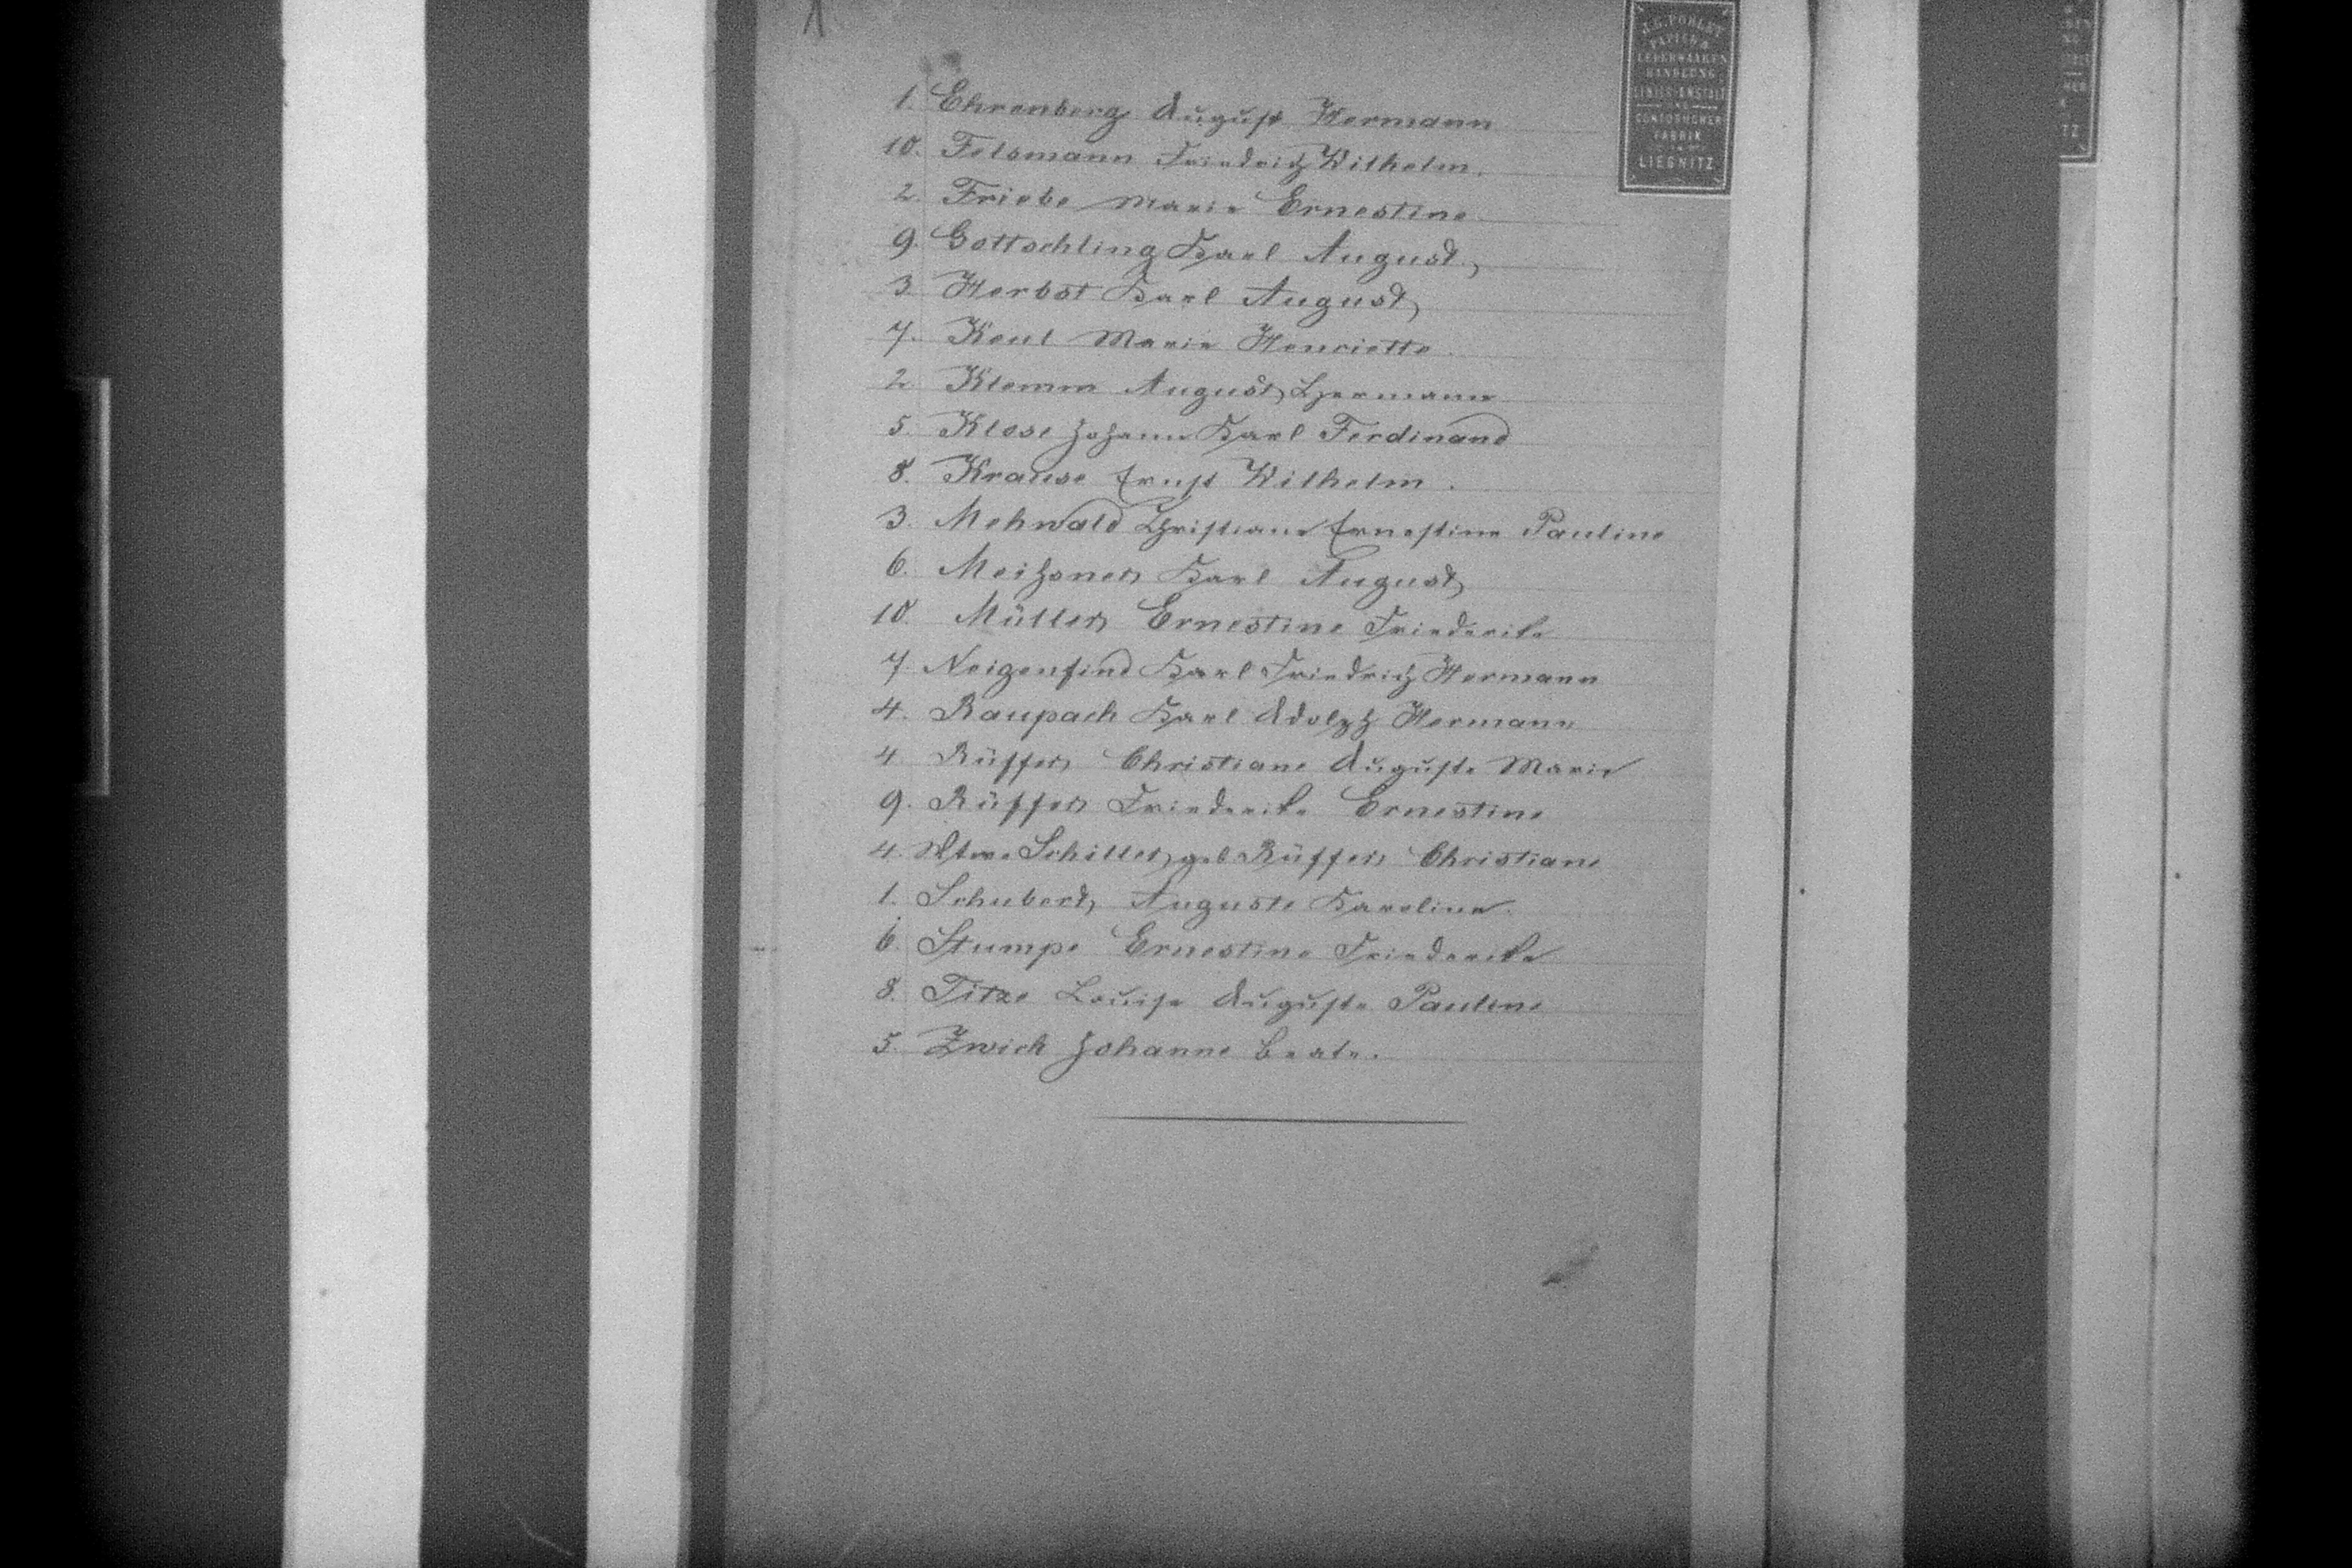 1. Ehrenberg August Hermann
10. Felsmann Friedrich Wilhelm.
2. Friebe Marie Ernestine
9. Gottschling Karl August,
3. Herbst Karl August,
7. Keul Marie Henriette.
2. Klemm August Hermann
5. Klose Johann Karl Ferdinand
8. Krause Ernst Wilhelm.
3. Mehwald Christiane Ernestine Pauline
6. Meißner Karl August
10. Müller Ernestine Friederike
7. Neigenfind Karl Friedrich Hermann
4. Raupach Karl Adolph Hermann
4. Rüffer Christiane Auguste Marie
9. Rüffer Friederike Ernestine
4. Wtwe Schiller, geb Rüffer Christiane
1. Schubert, Auguste Karoline.
6. Stumpe Ernestine Friederike
8. Titze Louise Auguste Pauline
5. Zwick Johanne Beate.
PAPIER &
LEDERWAAREN
HANDLUNG
LINIIR-ANSTALT
UND
CONTOBÜCHER
FABRIK
LIEGNITZ